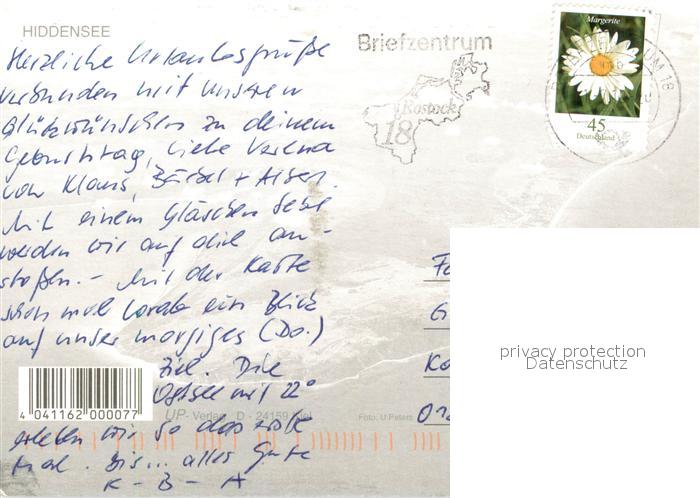 HIDDENSEE
Herzliche Urlaubsgrüße
verbunden mit unseren
Glückwünschen zu deinem
Geburtstag, liebe Verena
von Klaus, Bärbel +
Mit einem Gläschen Sekt
werden wir auf dich an-
stoßen. - Mit der Karte
schon mal vorab ein Blick
auf unser morgiges (Do.)
Ziel. Die
Ostsee mit 22°
erleben wir so das erste
mal. Bis... alles Gute
K - B - A
4 041162 000077
UP- Verlag D - 24159 Kiel
Foto: U.Peters
Briefzentrum
Rostock
18
Margerite
45
Deutschland
UM 18
privacy protection
Datenschutz